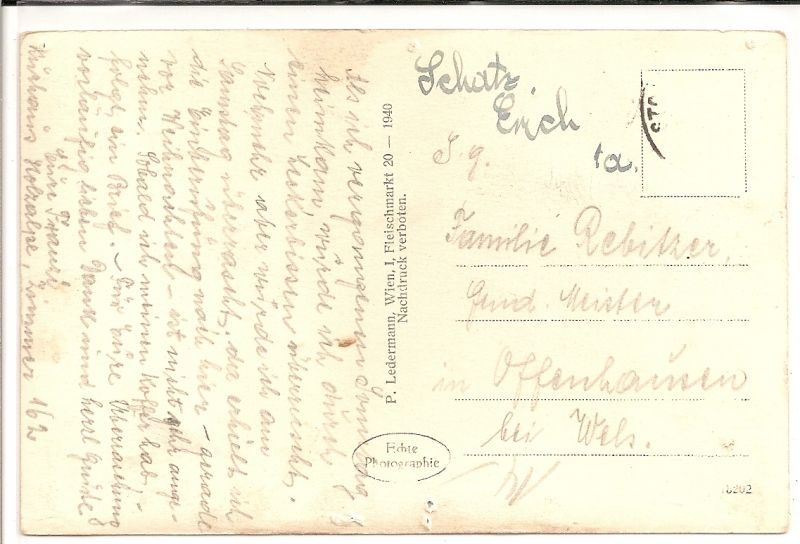 Als ich vergangenen Sonntag
heimkam, wurde ich durch
einen Leckerbissen überrascht.
Vielmehr aber wurde ich am
Samstag überrascht, da erhielt ich
die Einberufung nach hier – gerade
vor Weihnachten – ist nicht sehr ange-
nehm. Sobald ich meinen Koffer hab',
folgt ein Brief. – Für Eure Überraschung
vorläufig lieben Dank und herzl. Grüße
Eure
Kurhaus Holzalpe, Zimmer 162
P. Ledermann, Wien, I, Fleischmarkt 20 — 1940
Nachdruck verboten.
Echte
Photographie
Schatz
Erich
ta.
Familie Rebitzer,
Gend. Meister
in Offenhausen
bei Wels.